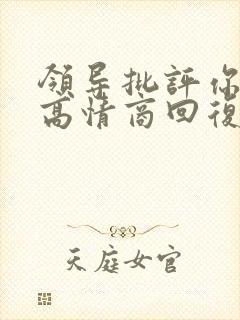 領导批評你
高情商回復
天庭女官